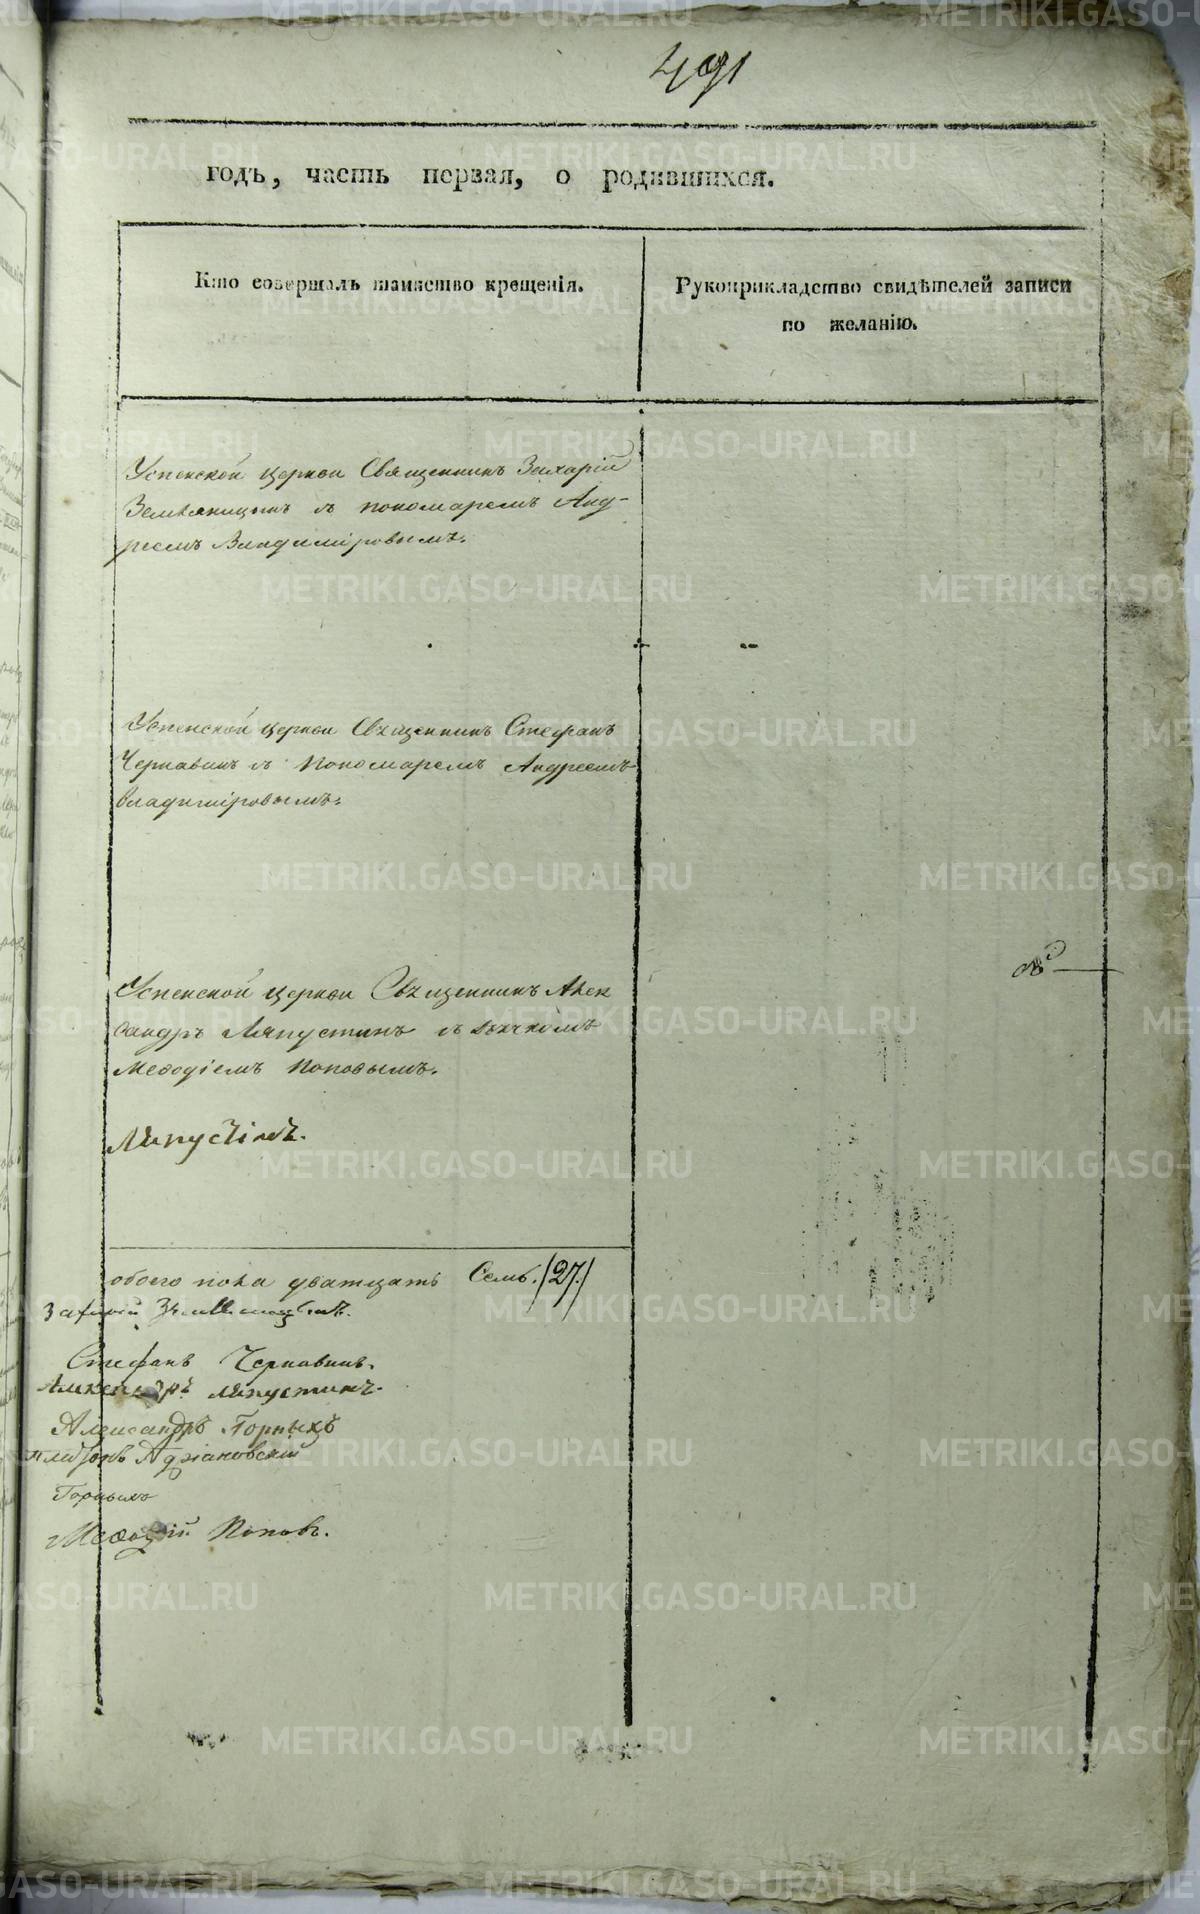 491
годъ, часть первая, о родившихся.
Кто совершалъ таинство крещенія.
Рукоприкладство свидѣтелей записи
по желанію.
Успенской церкви Священникъ Захарій
Земляницынъ съ пономаремъ Анд-
реемъ Владиміровымъ.
Успенской церкви Священникъ Стефанъ
Чернавинъ съ Пономаремъ Андреемъ
Владиміровымъ.
Успенской церкви Священникъ Алек
сандръ Ляпустинъ съ дьячкомъ
Меѳодіемъ Поповымъ.
Ляпустинъ.
обоего пола дватцать Семь. /27./
Захарій Земляницынъ.
Стефанъ Чернавинъ.
Александръ Ляпустинъ.
Александръ Горныхъ
Адріановскій
Горныхъ
Меѳодій Поповъ.
METRIKI.GASO-URAL.RU